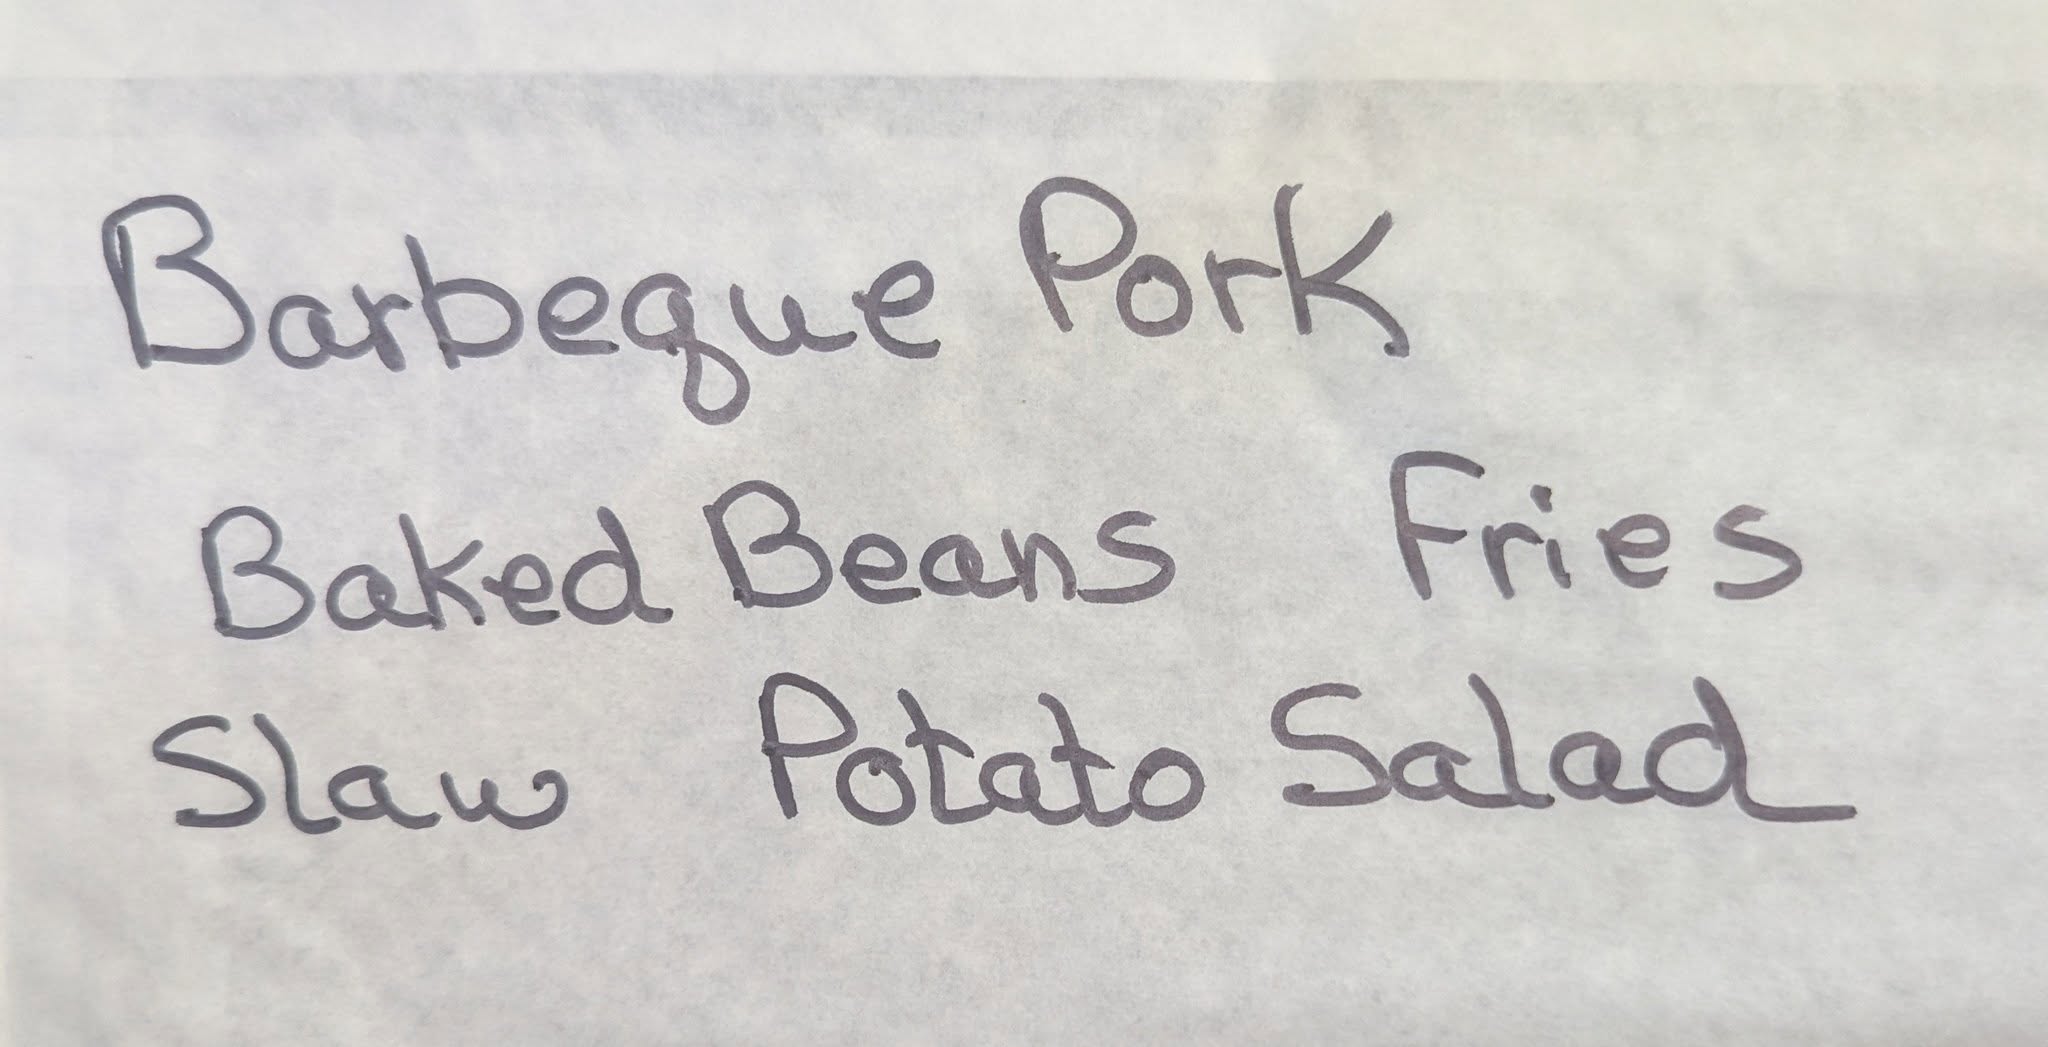 Barbeque Pork
Baked Beans Fries
Slaw Potato Salad